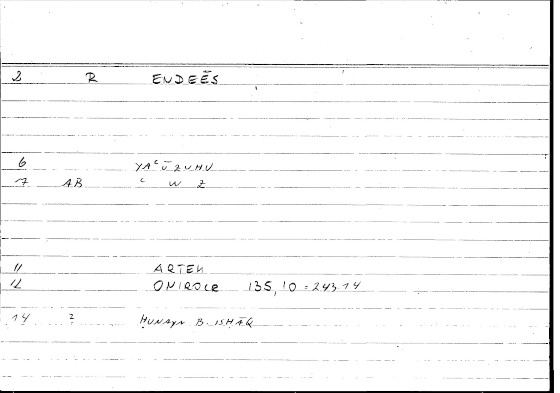 2 R ENDEĒS
6 YAʿŪZUHU
7 AB ʿ W Z
11 ARTEM
12 ONIROCR 135,10 = 243.14
14 ? ḤUNAYN B. ISḤĀQ